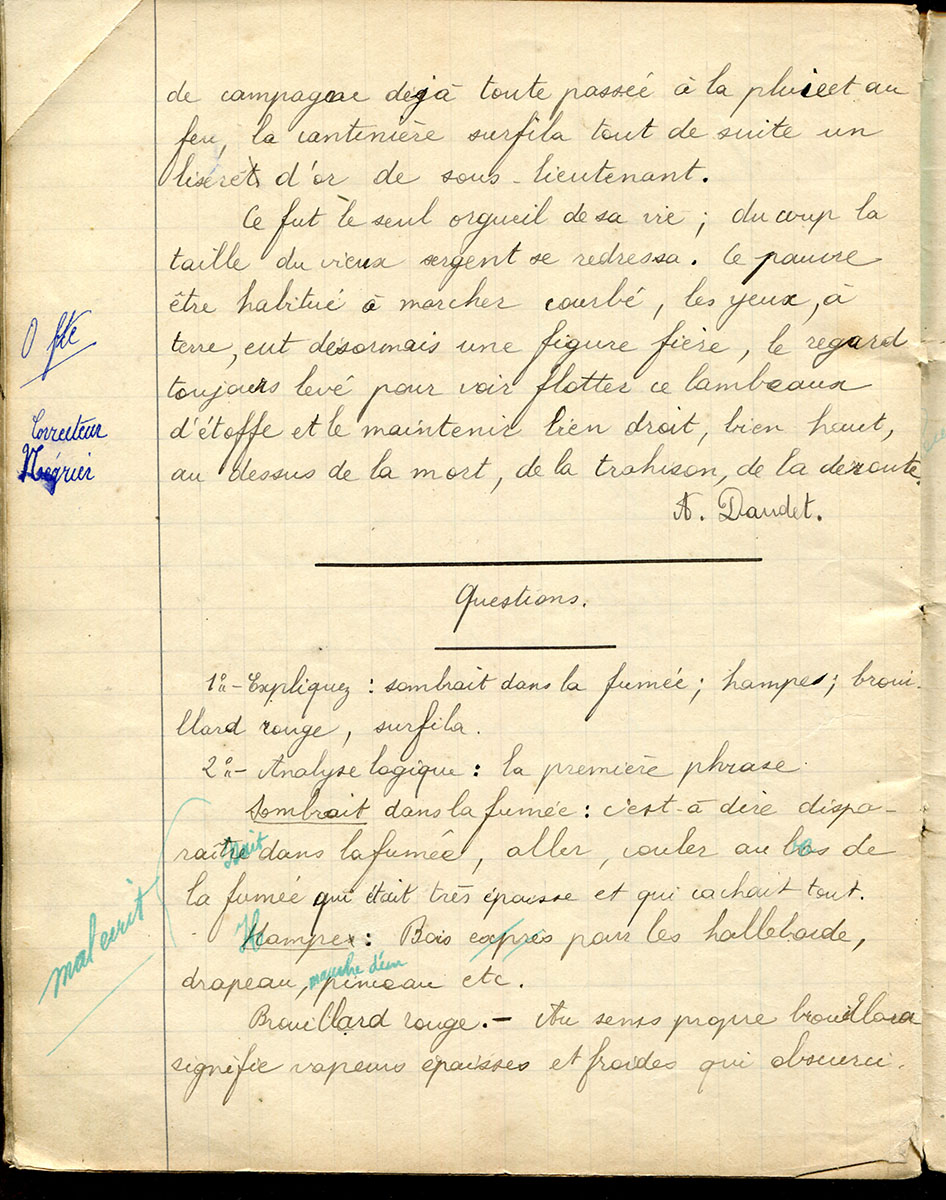 de campagne déjà toute passée à la pluie et au
feu, la cantinière surfila tout de suite un
liseret d'or de sous-lieutenant.
Ce fut le seul orgueil de sa vie ; du coup la
taille du vieux sergent se redressa. Ce pauvre
être habitué à marcher courbé, les yeux, à
terre, eut désormais une figure fière, le regard
toujours levé pour voir flotter ce lambeaux
d'étoffe et le maintenir bien droit, bien haut,
au dessus de la mort, de la trahison, de la deroute.
A. Daudet.
0 fte
Correcteur
Négrier
Questions.
1º - Expliquez : sombrait dans la fumée ; hampes ; broui-
llard rouge, surfila.
2º - Analyse logique : la première phrase
Sombrait dans la fumée : c'est-à dire dispa-
raître dans la fumée, aller, couler au bas de
la fumée qui était très épaisse et qui cachait tout.
Hampe : Bois exprès pour les hallebarde,
manche d'un
drapeau, pinceau etc.
mal écrit
Brouillard rouge. - Au sens propre brouillard
signifie vapeurs épaisses et froides qui obscurci-